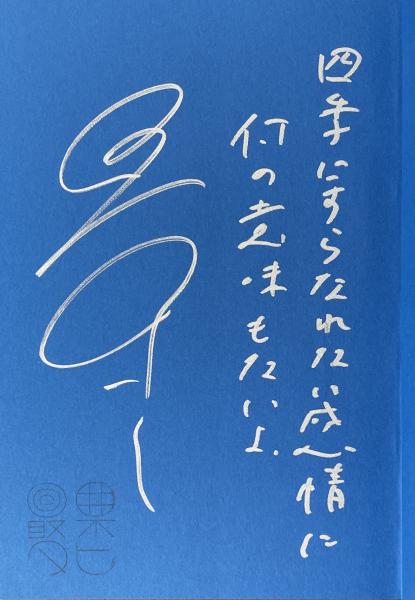 四季にすらなれない感情に
何の意味もないよ.